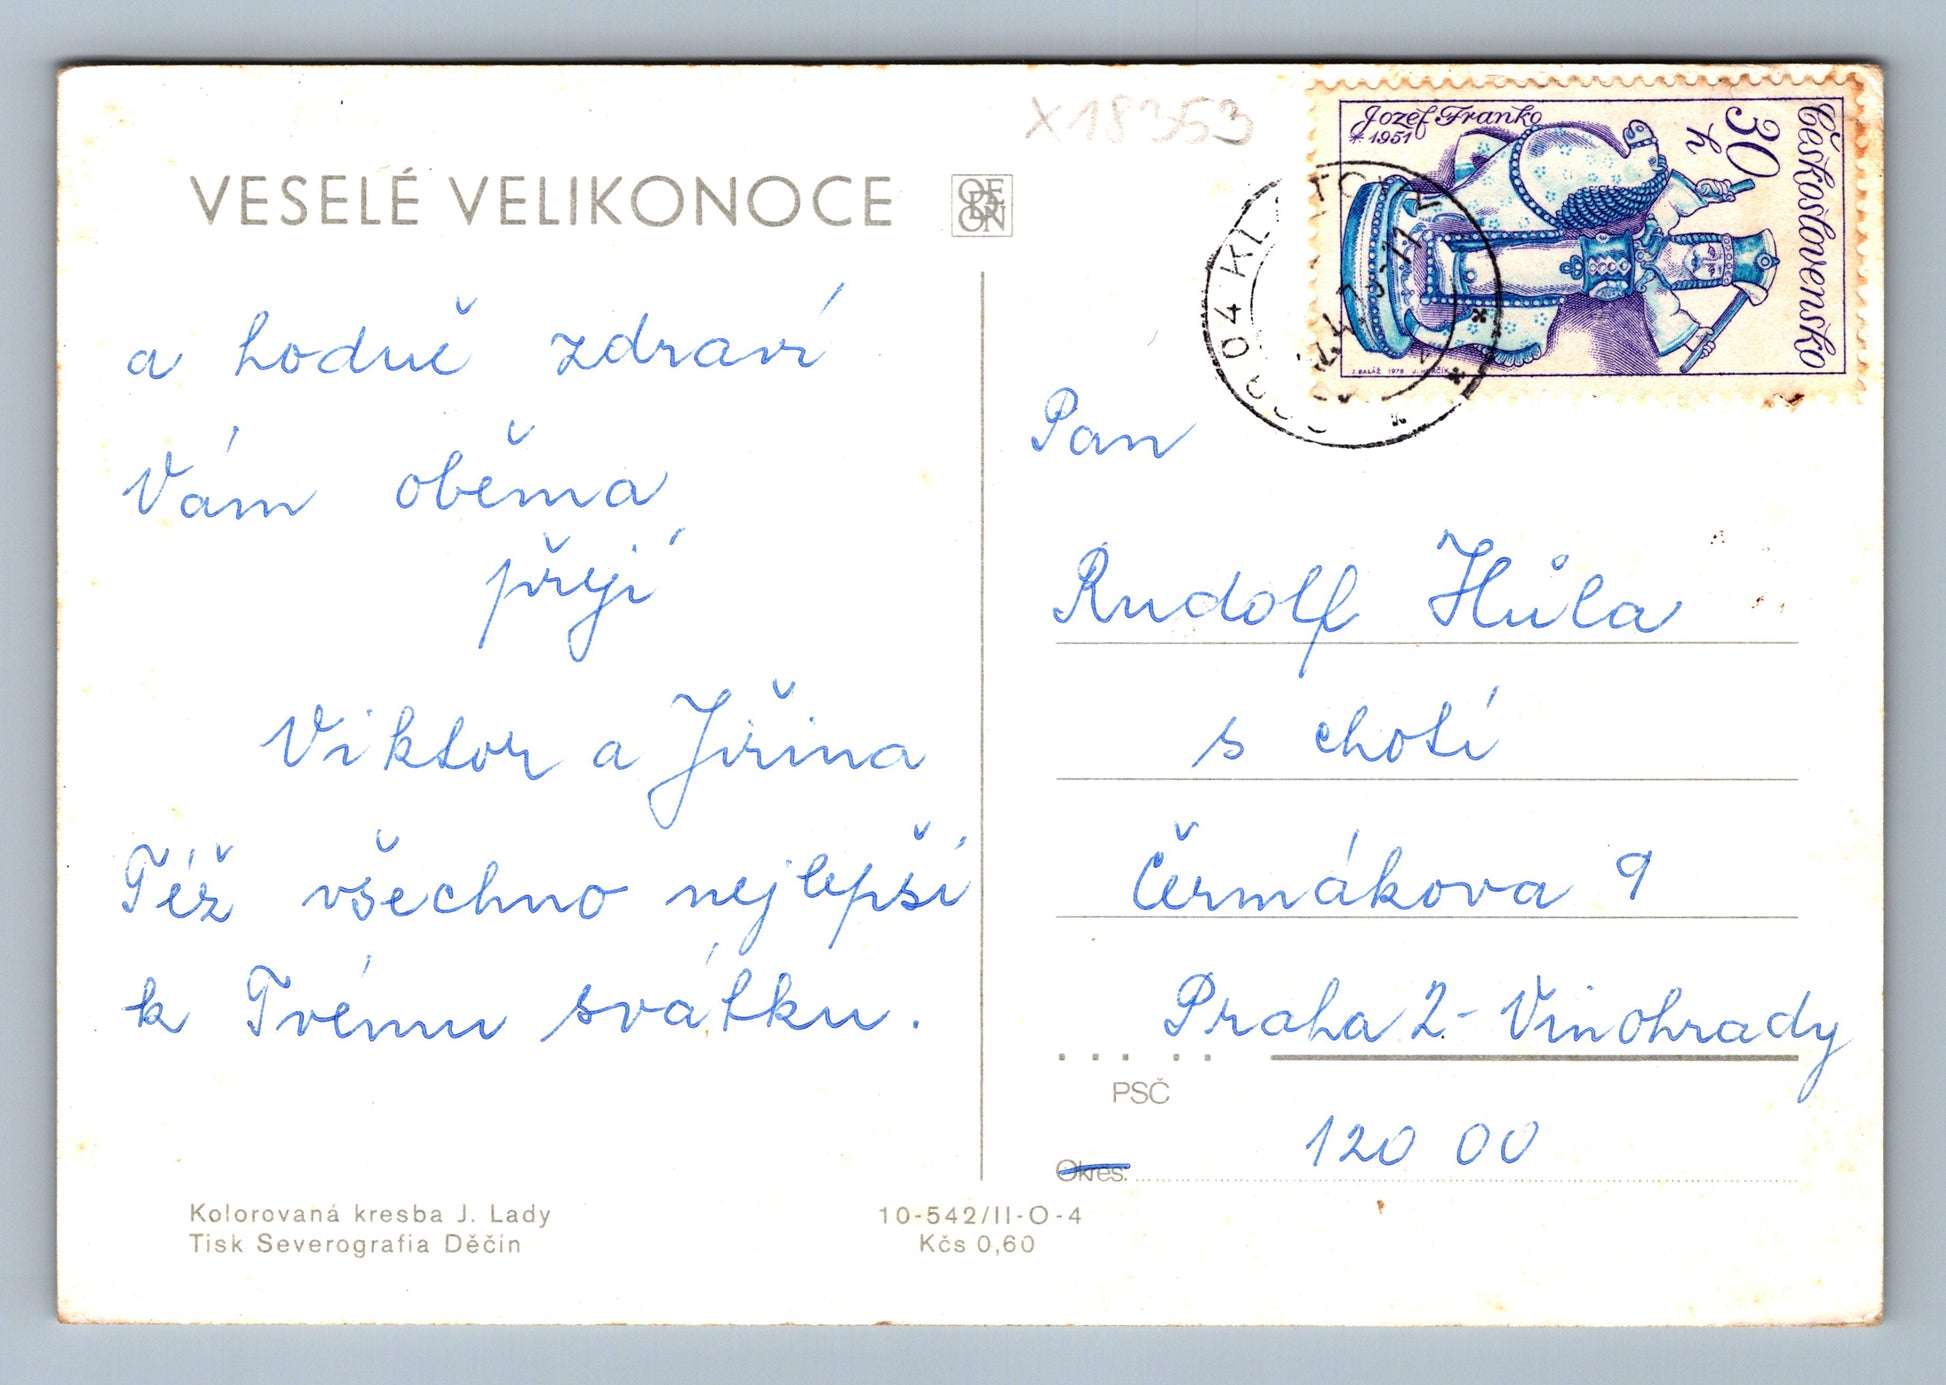 X18353
VESELÉ VELIKONOCE
ODEON
a hodně zdraví
Vám oběma
přejí
Viktor a Jiřina
Též všechno nejlepší
k Tvému svátku.
Kolorovaná kresba J. Lady
Tisk Severografia Děčín
10-542/II-O-4
Kčs 0,60
Jozef Franko
* 1951
30
h
Československo
J. BALÁŽ 1978 J. HERČÍK
04 KLATOVY
Pan
Rudolf Hůla
s chotí
Čermákova 9
Praha 2 - Vinohrady
PSČ
120 00
Okres: